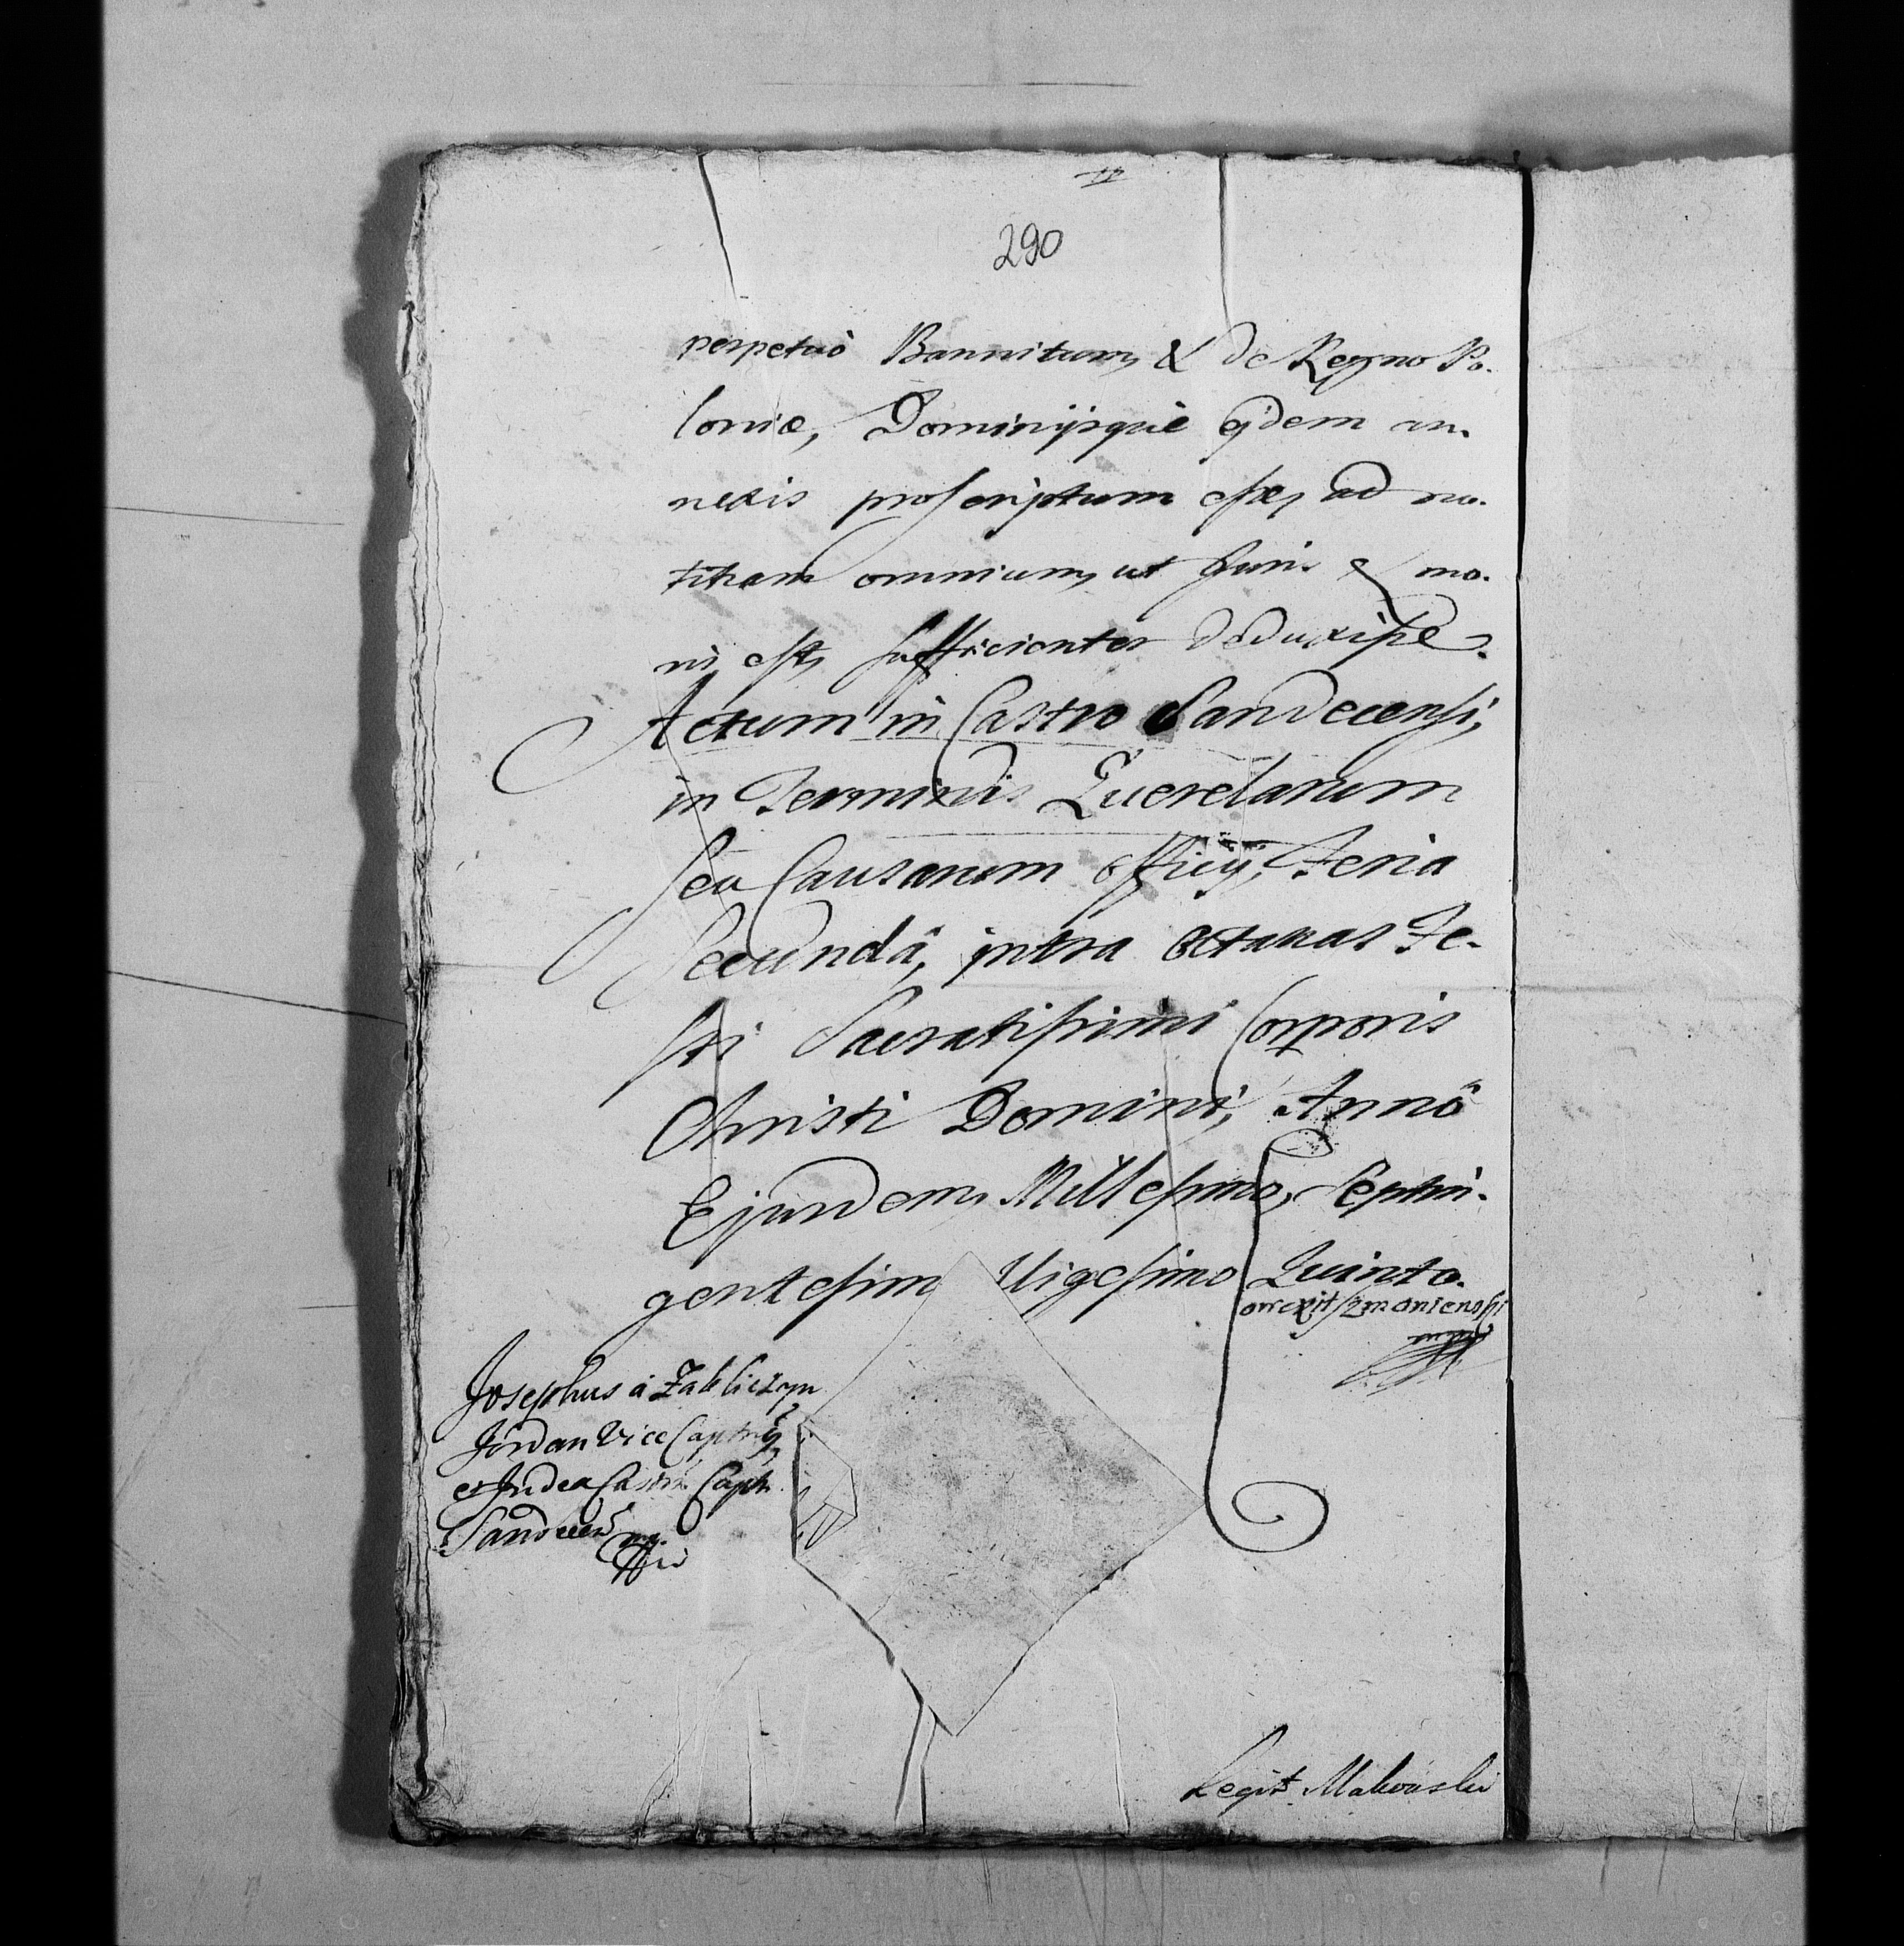 290
perpetuò Bannitum & de Regno Po.
loniæ, Dominijsquè ejdem an.
nexis proscriptum esse, ad no.
titiam omnium, ut Juris & mo.
ris est, sufficienter deduxisse.
Actum in Castro Sandecensi,
in Terminis Querelarum
seu Causarum officij, Feria
Secundâ, intra octavas Fe.
sti Sacratissimi Corporis
Christi Domini, Annô
Ejusdem, Millesimo, Septin.
gentesimo Vigesimo Quinto.
Correxit
Josephus à Zakliczyn
Jordan Vice Captneus
et Judex Castrĩ Capt.
Sandecen mp
Legit Makowski